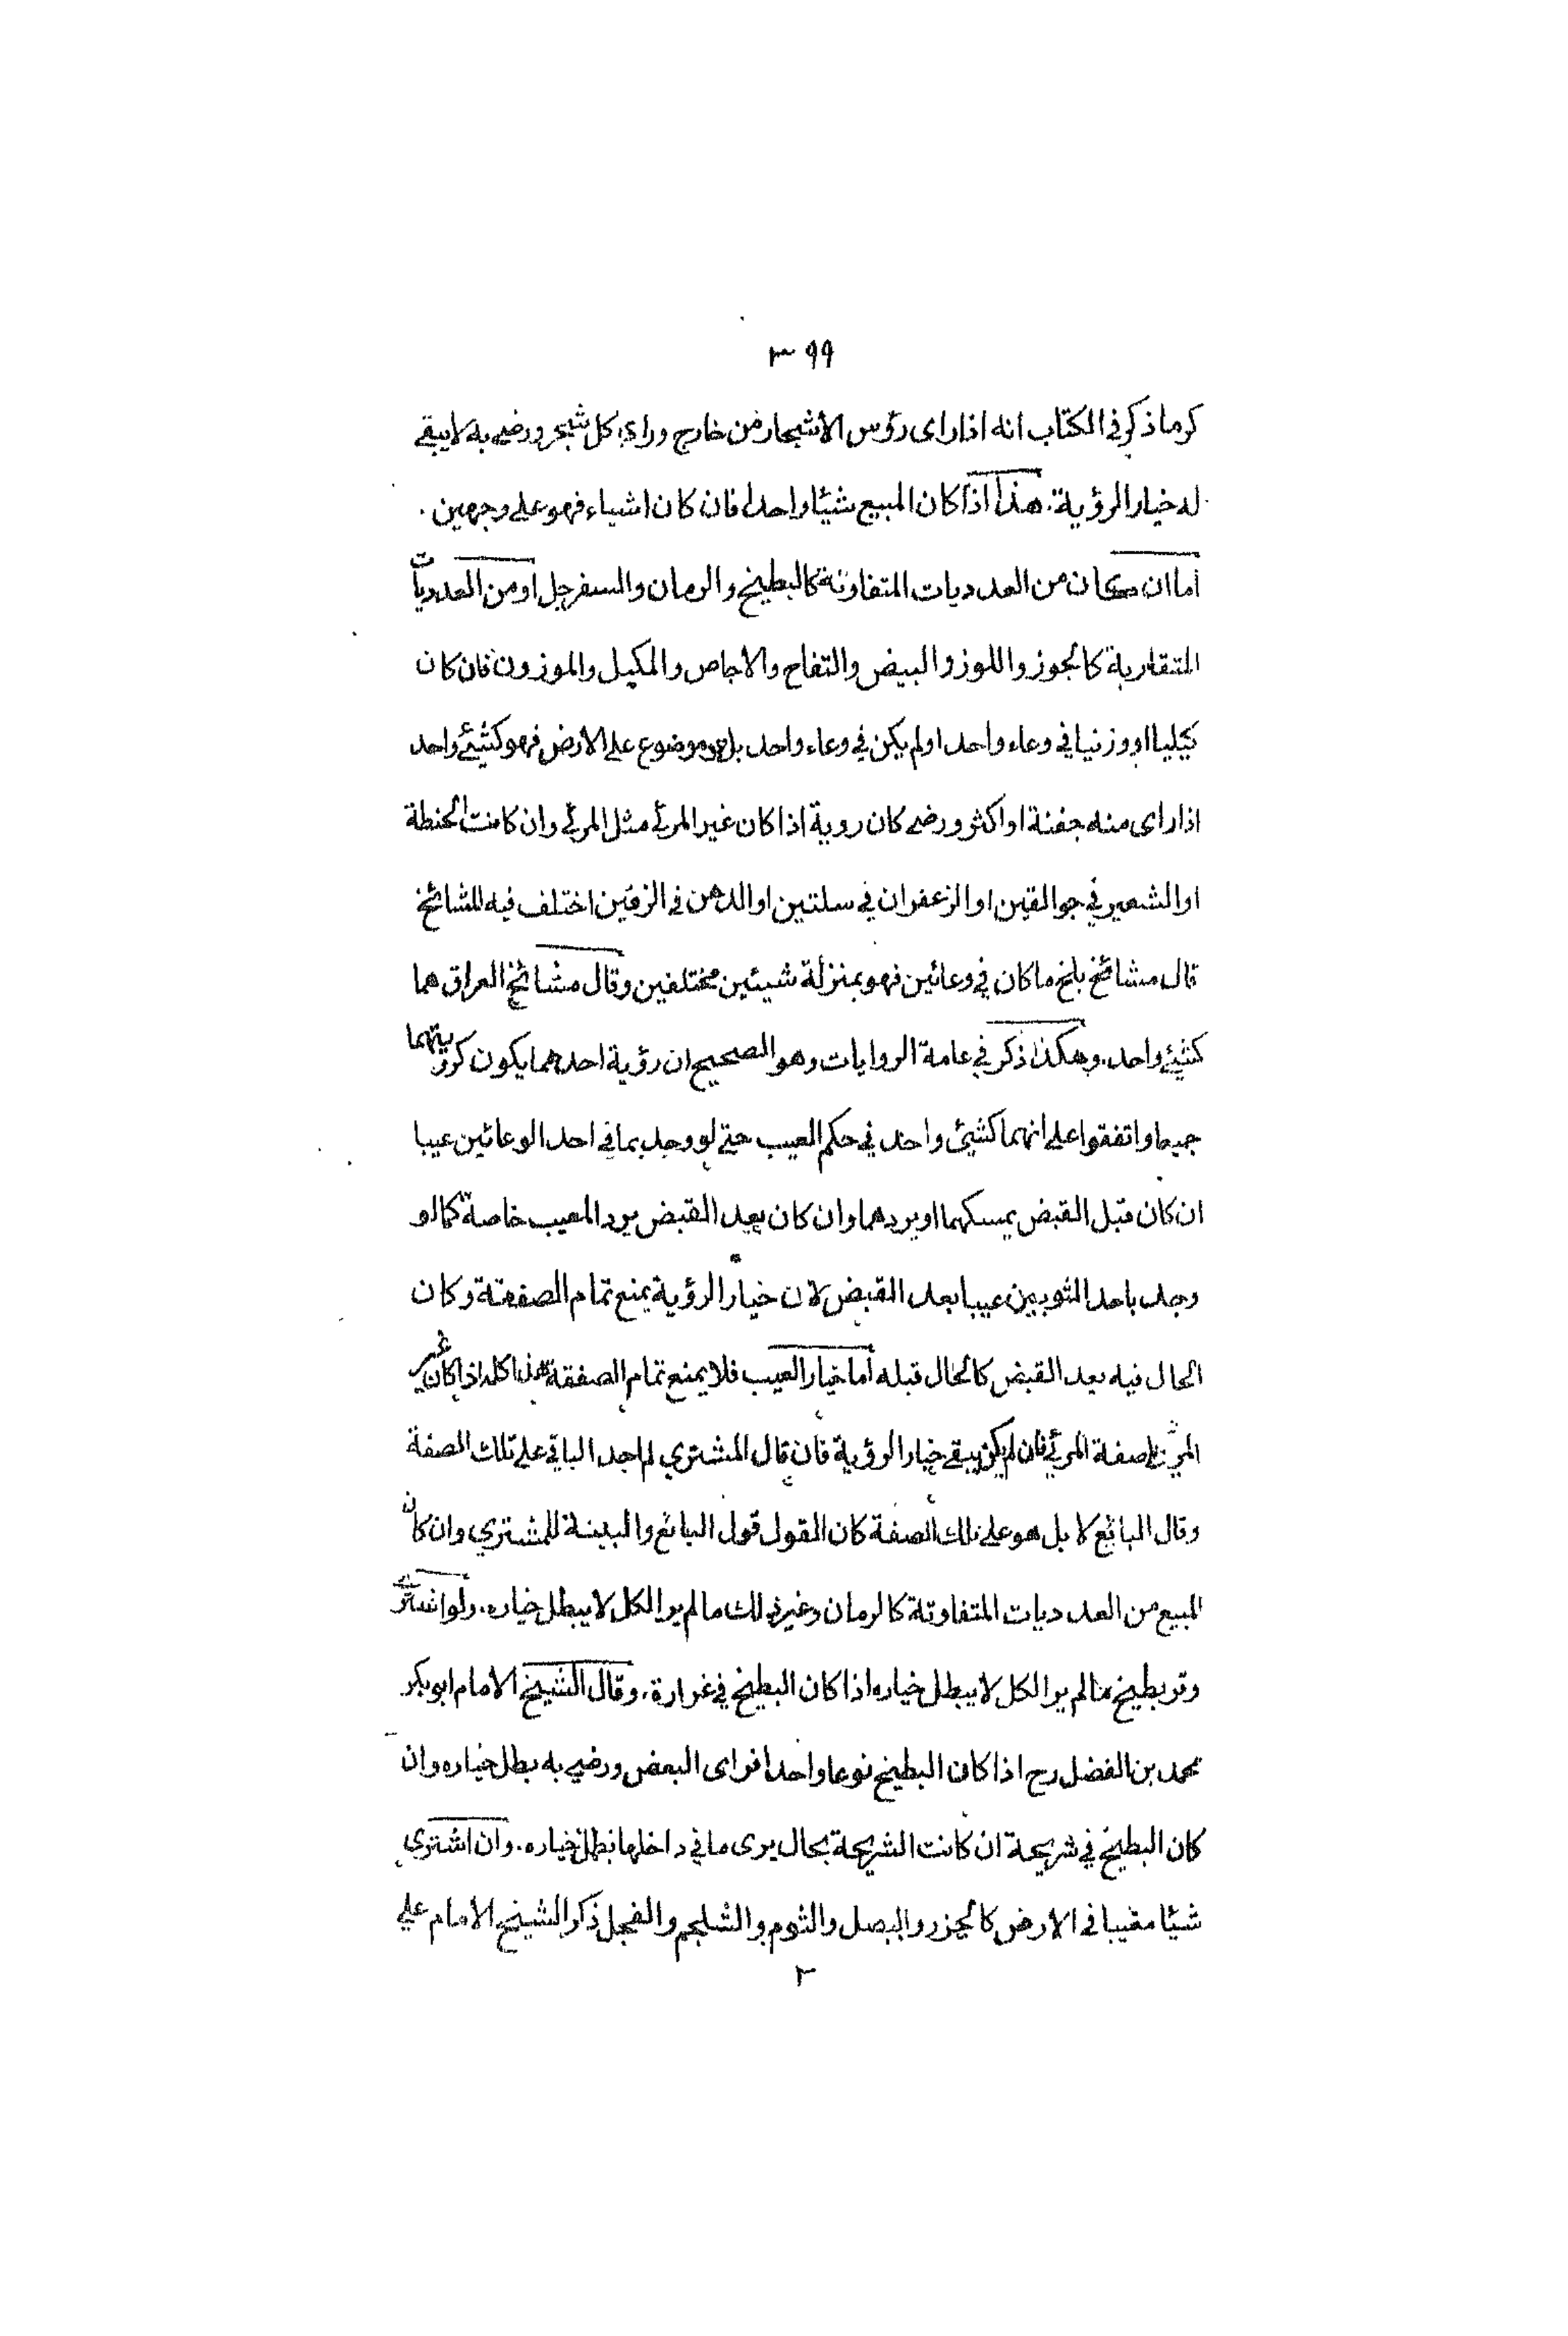 ٣٩٩
كرم اذكر في الكتاب انه اذا راى رؤس الاشجار من خارج وراى كل شجر ورضي به لا يبقى
له خيار الرؤية. هذا اذا كان المبيع شيئا واحدا فان كان اشياء فهو على وجهين.
اما ان كان من العدديات المتفاوتة كالبطيخ والرمان والسفرجل او من العدديات
المتقاربة كالجوز واللوز والبيض والتفاح والاجاص والمكيل والموزون فان كان
كيليا او وزنيا في وعاء واحد او لم يكن في وعاء واحد بل هو موضوع على الارض فهو كشيئ واحد
اذا راى منه جفنة او اكثر ورضى كان روية اذا كان غير المرئي مثل المرئي وان كانت الحنطة
او الشعير في جوالقين او الزعفران في سلتين او الدهن في الزقين اختلف فيه المشائخ
قال مشائخ بلخ ما كان في وعائين فهو بمنزلة شيئين مختلفين وقال مشائخ العراق هما
كشيئ واحد. وهكذا ذكر في عامة الروايات وهو الصحيح ان رؤية احدهما يكون كرؤيتهما
جميعا واتفقوا على انهما كشيئ واحد في حكم العيب حتى لو وجد بما في احد الوعائين عيبا
ان كان قبل القبض يمسكهما او يردهما وان كان بعد القبض يرد المعيب خاصة كما لو
وجد باحد الثوبين عيبا بعد القبض لان خيار الرؤية يمنع تمام الصفقة وكان
الحال فيه بعد القبض كالحال قبله اما خيار العيب فلا يمنع تمام الصفقة هذا كله اذا كان غير
المرئي على صفة المرئي فان لم يكن يبقى خيار الرؤية فان قال المشتري لم اجد الباقي على تلك الصفة
وقال البائع لا بل هو على تلك الصفة كان القول قول البائع والبينة للمشتري وان كان
المبيع من العدديات المتفاوتة كالرمان وغير ذلك ما لم ير الكل لا يبطل خياره. ولو اشترى
وقر بطيخ ما لم ير الكل لا يبطل خياره اذا كان البطيخ في غرارة. وقال الشيخ الامام ابو بكر
محمد بن الفضل رح اذا كان البطيخ نوعا واحدا فراى البعض ورضي به بطل خياره وان
كان البطيخ في شريحة ان كانت الشريحة بحال يرى ما في داخلها بطل خياره. وان اشترى
شيئا مغيبا في الارض كالجزر والبصل والثوم والشلجم والفجل ذكر الشيخ الامام علي
٣